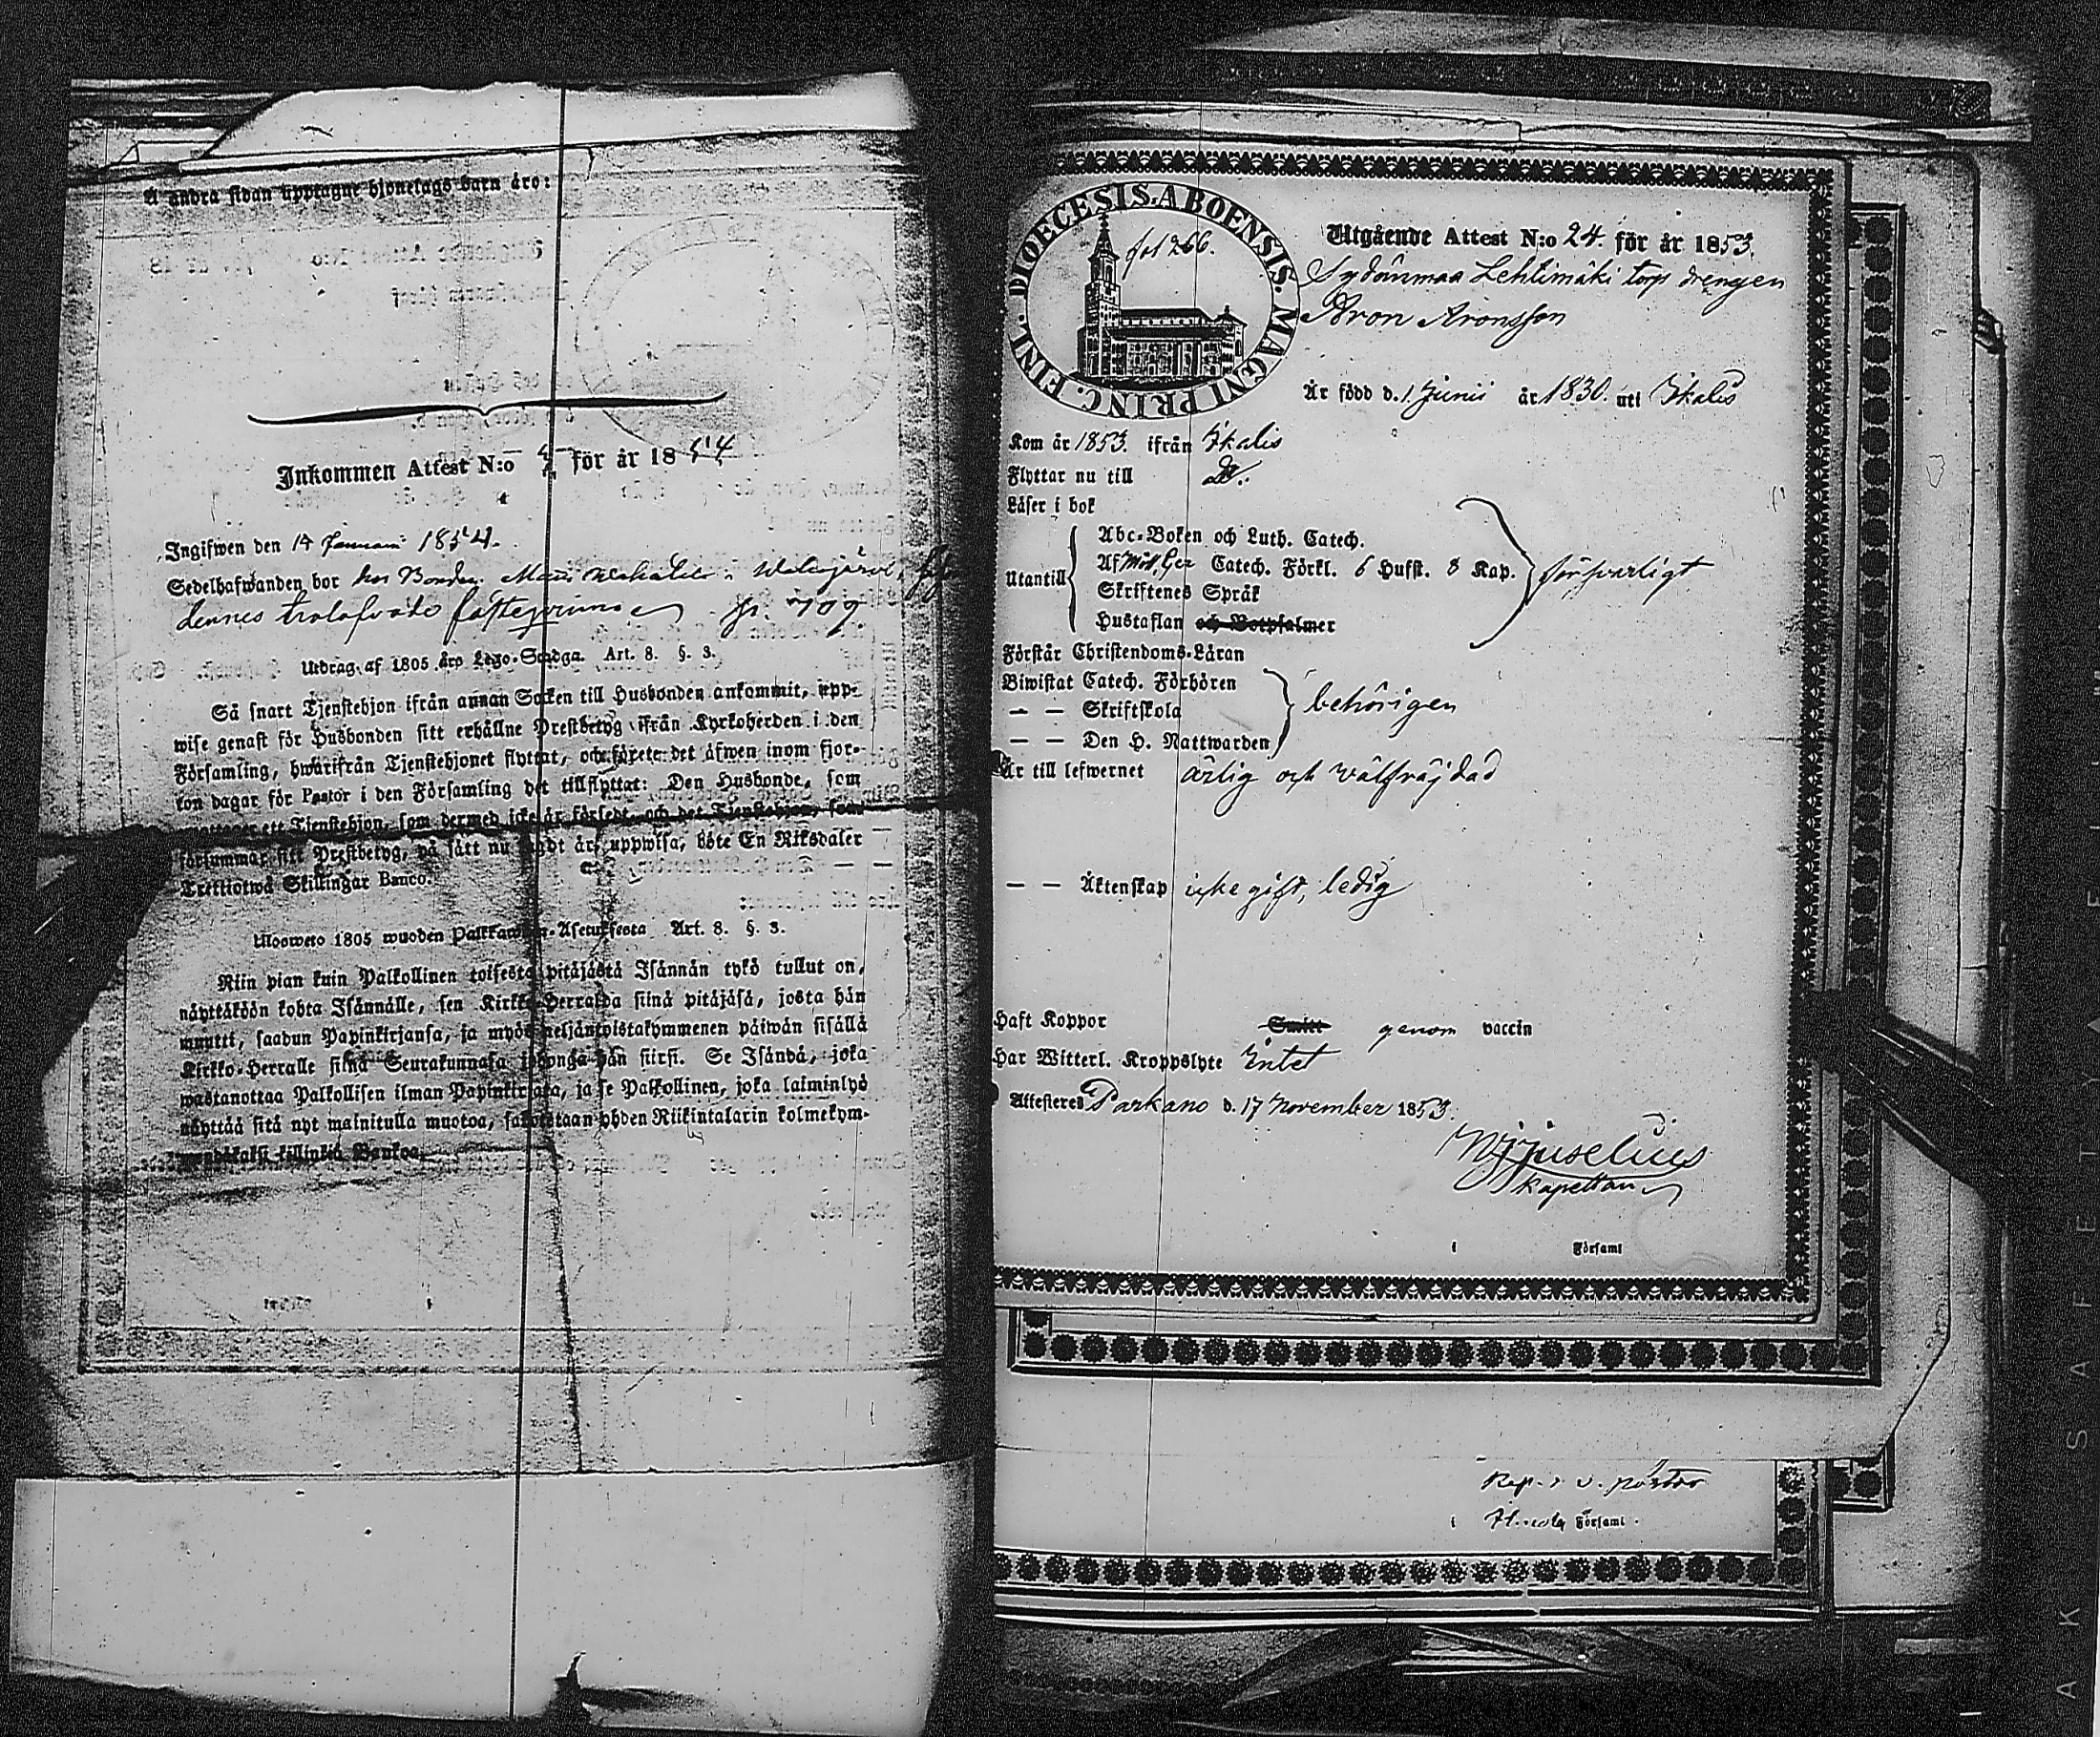 Å andra sidan upptagne hjonelags barn äro:
Inkommen Attest N:o för år 1854
Ingifwen den 14 Januari 1854.
Sedelhafwanden bor hos Bonden
dennes trolofvade fästeqvinna
Utdrag af 1805 års Lego-Stadga Art. 8. §. 3.
Så snart Tjenstehjon ifrån annan Socken till Husbonden ankommit, upp-
wise genast för Husbonden sitt erhållne Prestbetyg ifrån Kyrkoherden i den
Församling, hwarifrån Tjenstehjonet flyttat, och förete det äfwen inom fjor-
ton dagar för Pastor i den Församling det tillflyttat: Den Husbonde, som
mottager ett Tjenstehjon, som dermed icke är försedt, och det Tjenstehjon, som
försummar sitt Prestbetyg, på sätt nu sagdt är, uppwisa, böte En Riksdaler
Trettiotwå Skillingar Banco.
Ulosweto 1805 wuoden Palkkawäen-Asetuksesta Art. 8. §. 3.
Niin pian kuin Palkollinen toisesta pitäjästä Isännän tykö tullut on,
näyttäköön kohta Isännälle, sen Kirkko-Herralda siinä pitäjäsä, josta hän
muutti, saadun Papinkirjansa, ja myös neljäntoistakymmenen päiwän sisällä
Kirkko-Herralle siinä Seurakunnasa johonga hän siirsi. Se Isändä, joka
wastanottaa Palkollisen ilman Papinkirjata, ja se Palkollinen, joka laiminlyö
näyttää sitä nyt mainitulla muotoa, sakotetaan yhden Riikintalarin kolmekym-
mendäkaksi killinkiä Bankoa.
DIOECESIS. ABOENSIS. MAGNI PRINC. FINL.
fol 266.
Utgående Attest N:o 24. för år 1853.
Sydänmaa Lehtimäki torp drengen
Aron Aronsson
Är född d. 1 Junii år 1830. uti Ikalis
Kom år 1853. ifrån Ikalis
Flyttar nu till
Läser i bok
Utantill
Abc-Boken och Luth. Catech.
Af Catech. Förkl. 6 Hufst. 8 Kap.
Skriftenes Språk
Hustaflan och Botpsalmer
försvarligt
Förstår Christendoms-Läran
Biwistat Catech. Förhören
— — Skriftskola
— — Den H. Nattwarden
behörigen
Är till lefwernet ärlig och välfräjdad
— — Äktenskap icke gift, ledig
Haft Koppor Smitt genom vaccin
Har Witterl. Kroppslyte Intet
Attesteres Parkano d. 17 November 1853.
Juselius
Kapellan
i Församl
Kap. v. pastor
i Församl.